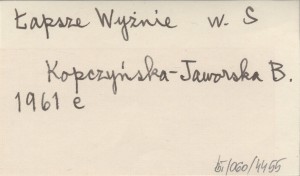 Łapsze Wyżnie w. S
Kopczyńska-Jaworska B.
1961 e
/060/4455